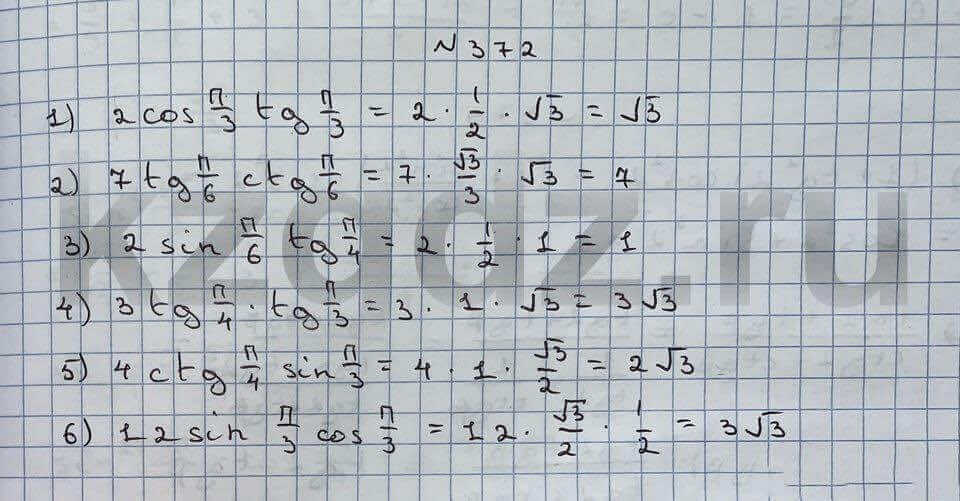 N 372
1) 2 cos π/3 tg π/3 = 2 · 1/2 · √3 = √3
2) 7 tg π/6 ctg π/6 = 7 · √3/3 · √3 = 7
3) 2 sin π/6 tg π/4 = 2 · 1/2 · 1 = 1
4) 3 tg π/4 · tg π/3 = 3 · 1 · √3 = 3√3
5) 4 ctg π/4 sin π/3 = 4 · 1 · √3/2 = 2√3
6) 12 sin π/3 cos π/3 = 12 · √3/2 · 1/2 = 3√3
kzgdz.ru